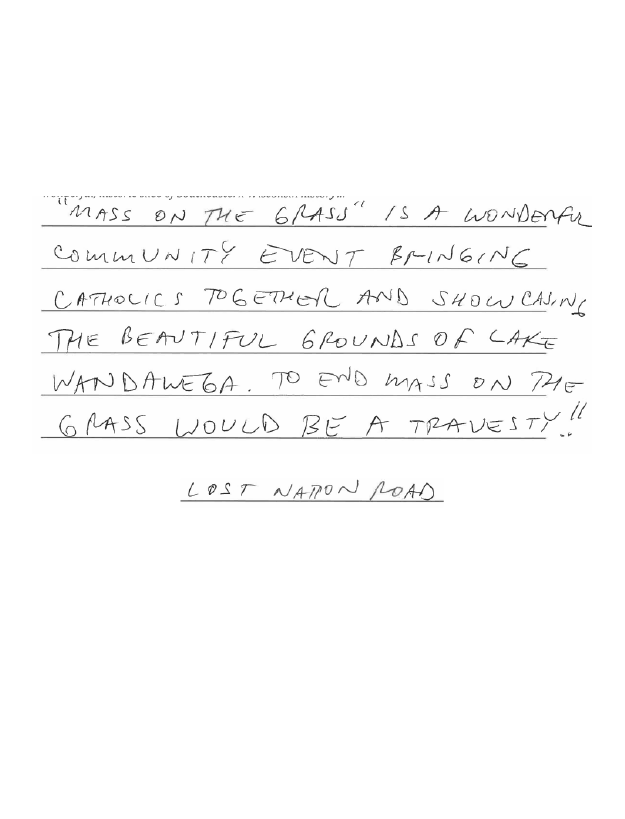 "MASS ON THE GRASS" IS A WONDERFUL
COMMUNITY EVENT BRINGING
CATHOLICS TOGETHER AND SHOWCASING
THE BEAUTIFUL GROUNDS OF LAKE
WANDAWEGA. TO END MASS ON THE
GRASS WOULD BE A TRAVESTY!!
LOST NATION ROAD